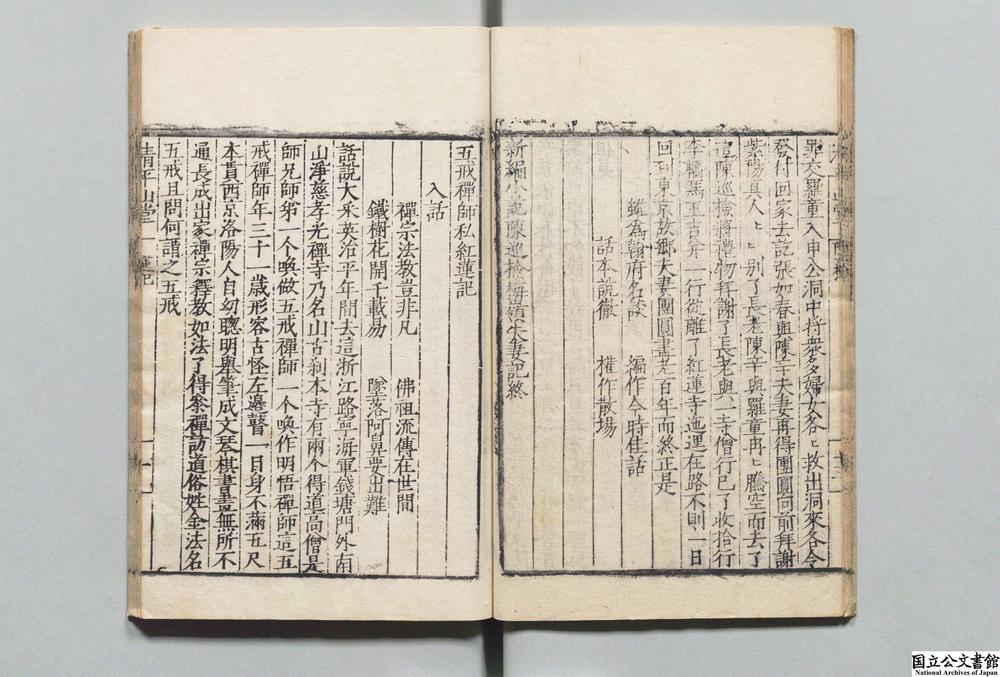 罪交羅童入申公洞中將衆多婦女各〻救出洞來各令
發付回家去訖張如春與陳辛夫妻再得團圓向前拜謝
紫陽眞人〻〻別了長老陳辛與羅童再〻騰空而去了
這陳巡檢將禮物拜謝了長老與一寺僧行已了收拾行
李轎馬王吉并一行從離了紅蓮寺迤逞在路不則一日
回到東京故鄉夫妻團圓盡老百年而終正是
雖為翰府名談 編作今時佳話
話本說徹 權作散場
新編小說陳巡檢梅嶺失妻記終
五戒禪師私紅蓮記
入話
禪宗法教豈非凡 佛祖流傳在世間
鐵樹花開千載易 墜落阿鼻要出難
話說大宋英治平年間去這浙江路寧海軍錢塘門外南
山淨慈孝光禪寺乃名山古刹本寺有兩个得道高僧是
師兄師弟一个喚做五戒禪師一个喚作明悟禪師這五
戒禪師年三十一歲形容古怪左邊瞽一目身不滿五尺
本貫西京洛陽人自幼聰明舉筆成文琴棋書畫無所不
通長成出家禪宗釋教如法了得參禪訪道俗姓金法名
五戒且問何謂之五戒
清平山堂
国立公文書館
National Archives of Japan